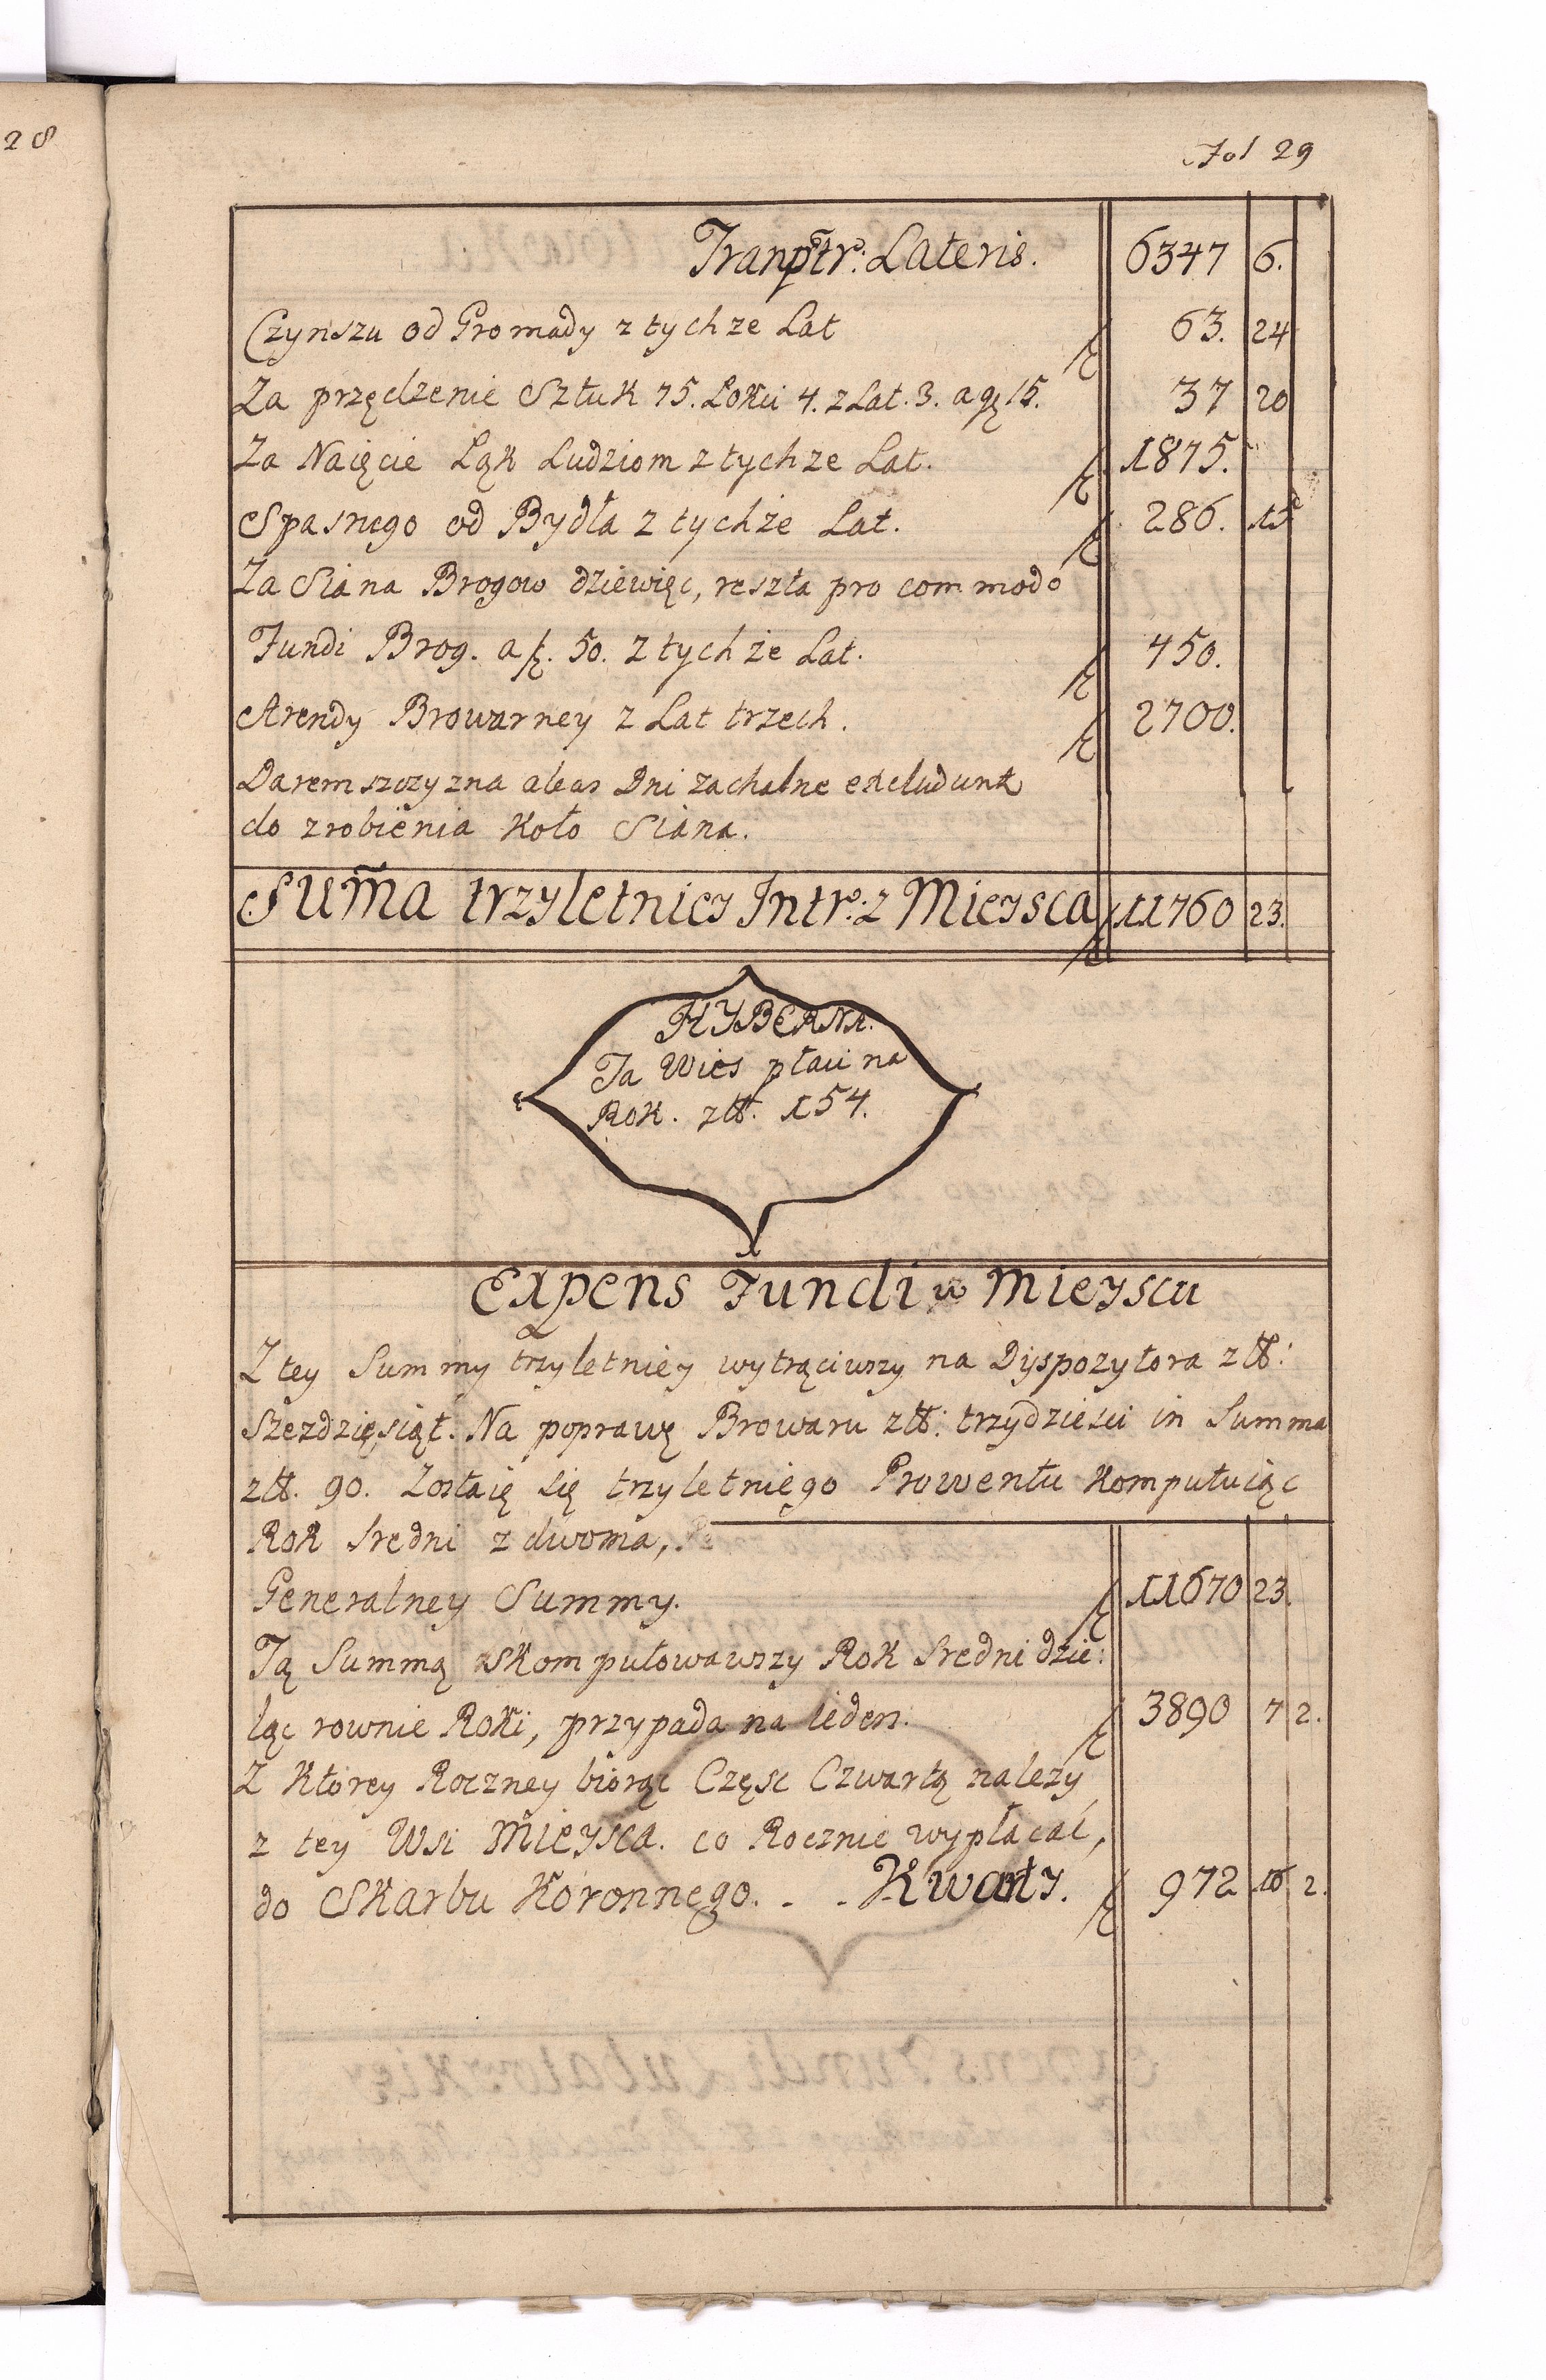 28
Fol 29
Tranptr: Lateris. 6347 6.
Czynszu od Gromady z tychze Lat 63. 24
Za przędzenie Sztuk 75. Łokci 4. z Lat. 3. a gę 15. 37 20
Za Naięcie Ląk Ludziom z tychze Lat. 1875.
Spasnego od Bydła z tychże Lat. 286. 15
Za Siana Brogow dziewięc, reszta pro commodo
Fundi Brog. a f. 50. z tychże Lat. 450.
Arendy Browarney z Lat trzech. 2700.
Daremszczyzna Dni zachalne excludunt
do zrobienia Koło Siana.
Suma trzyletniey Intr: z Mieysca 11760 23.
HYBERNA.
Ta Wies płaci na
Rok. złł. 154.
Expens Fundi w Mieyscu
Z tey Summy trzyletniey wytrąciwszy na Dyspozytora złł:
szezdzięsiąt. Na poprawę Browaru złł: trzydziesci in Summa
złł. 90. Zostaię się trzyletniego Prowentu Komputuiąc
Rok sredni z dwoma,
Generalney Summy. 11670 23.
Tą Summą skomputowawszy Rok sredni dzie:
ląc rownie Roki, przypada na ieden. 3890 7 2.
Z Ktorey Roczney biorąc Częsc Czwartą nalezy
z tey Wsi Mieysca. co Rocznie wypłacać,
do Skarbu Koronnego. - - Kwarty. 972 16 2.